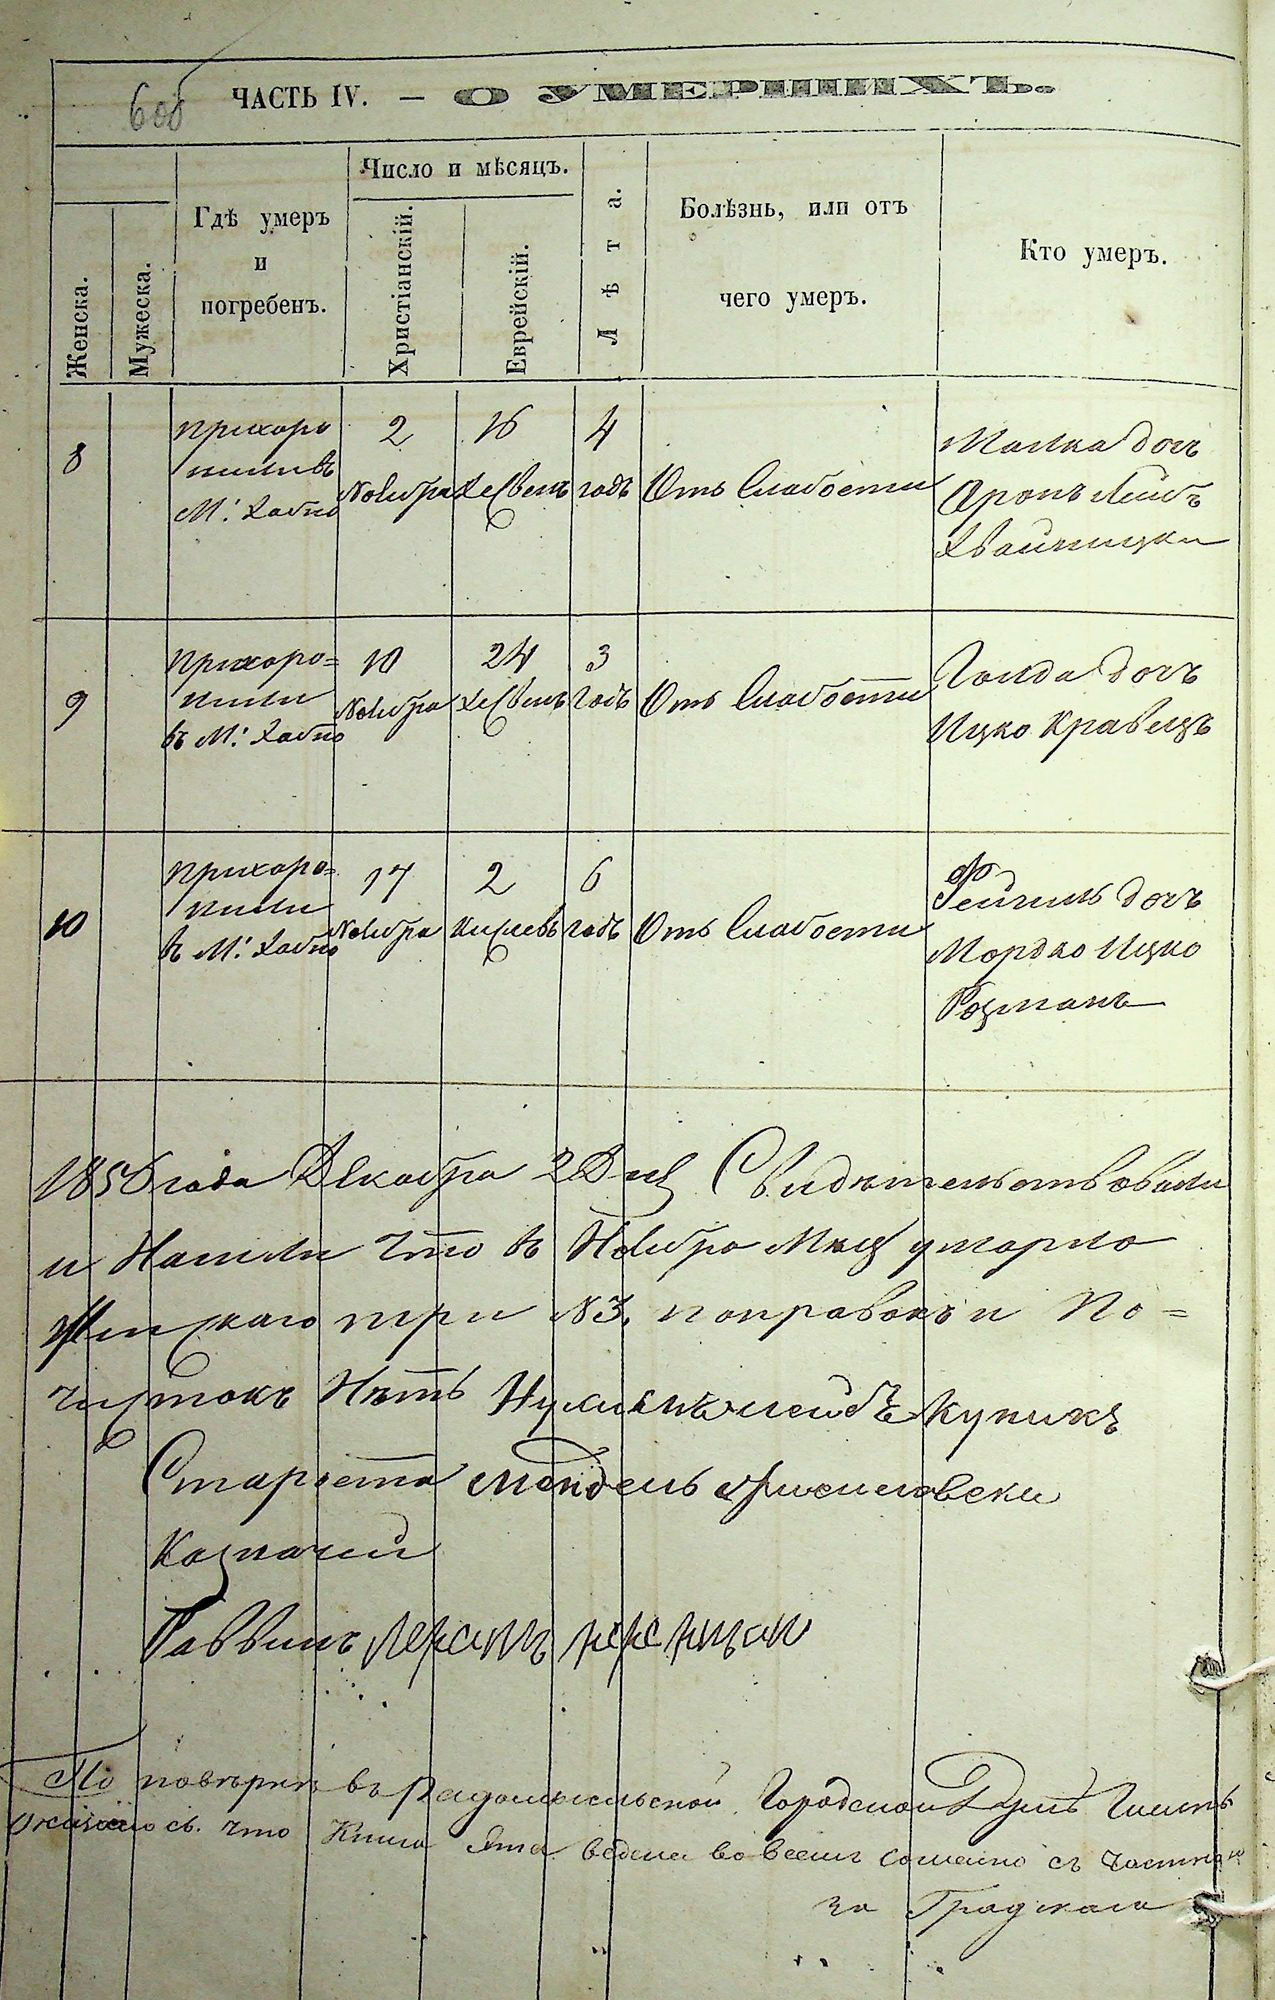 60об
ЧАСТЬ IV. — О УМЕРШИХЪ.
Женска.
Мужеска.
Гдѣ умеръ
и
погребенъ.
Число и мѣсяцъ.
Христіанскій.
Еврейскій.
Лѣта.
Болѣзнь, или отъ
чего умеръ.
Кто умеръ.
8
прихоро
нили въ
М: Хабно
2
Ноебра
16
Хесвенъ
4
годъ
Отъ Слабости
Малка дочъ
Аронъ Лейбъ
Хвайницки
9
Прихоро=
нили
въ М: Хабно
10
Ноебра
24
Хесвенъ
3
Годъ
Отъ Слабости
Голда дочъ
Ицко Кравецъ
10
Прихоро=
нили
в М: Хабно
17
Ноебра
2
Кислевъ
6
годъ
Отъ Слабости
Фейгиль дочъ
Мордко Ицко
Розманъ
1856 года Декабра 2 Дня Свидѣтельствовали
и Нашли Что в Ноебра Мцѣ умарло
Женскаго три №3. поправокъ и По=
чистокъ Нѣтъ лейбъ Купикъ
Староста Мендель
Казначей
Раввинъ
По повѣркѣ въ Радомысльской Городской Думѣ Гласнъ
оказалось. что Книга эта ведена во всемъ согласно съ частною
за Градскаго